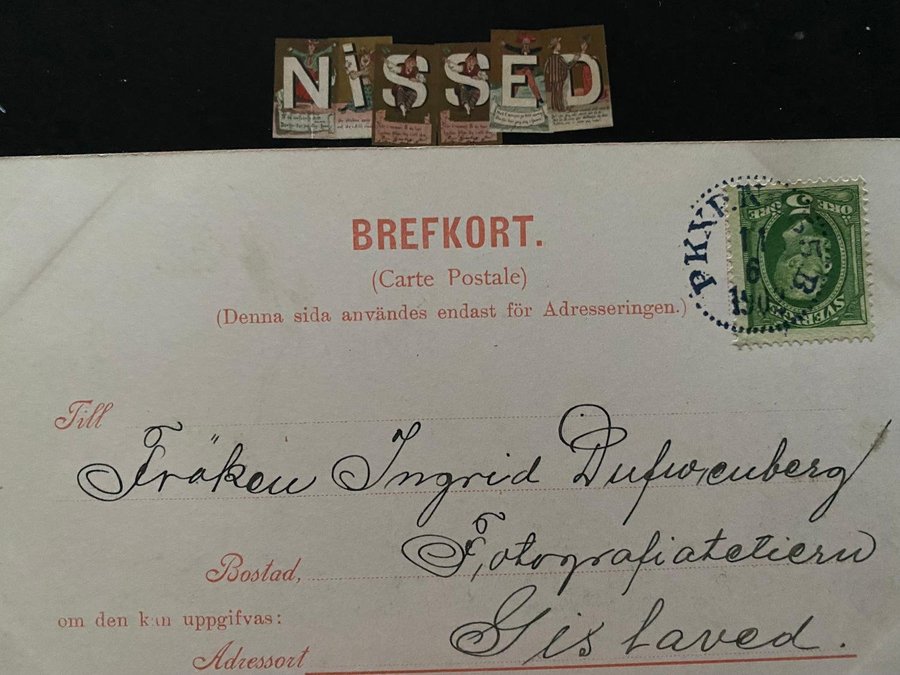 NISSED
BREFKORT.
(Carte Postale)
(Denna sida användes endast för Adresseringen.)
PKXP.N
5.B
17
6
190
5 ÖRE
ÖRE
SVERIGE
Till
Fröken Ingrid Dufwenberg
Fotografiateliern
Bostad,
om den kan uppgifvas:
Gislaved.
Adressort